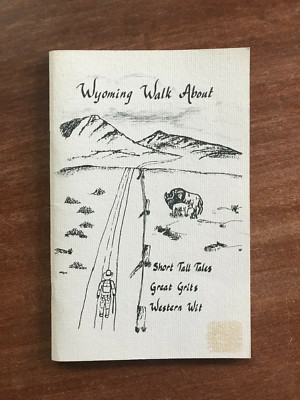 Wyoming Walk About
Short Tall Tales
Great Grits
Western Wit